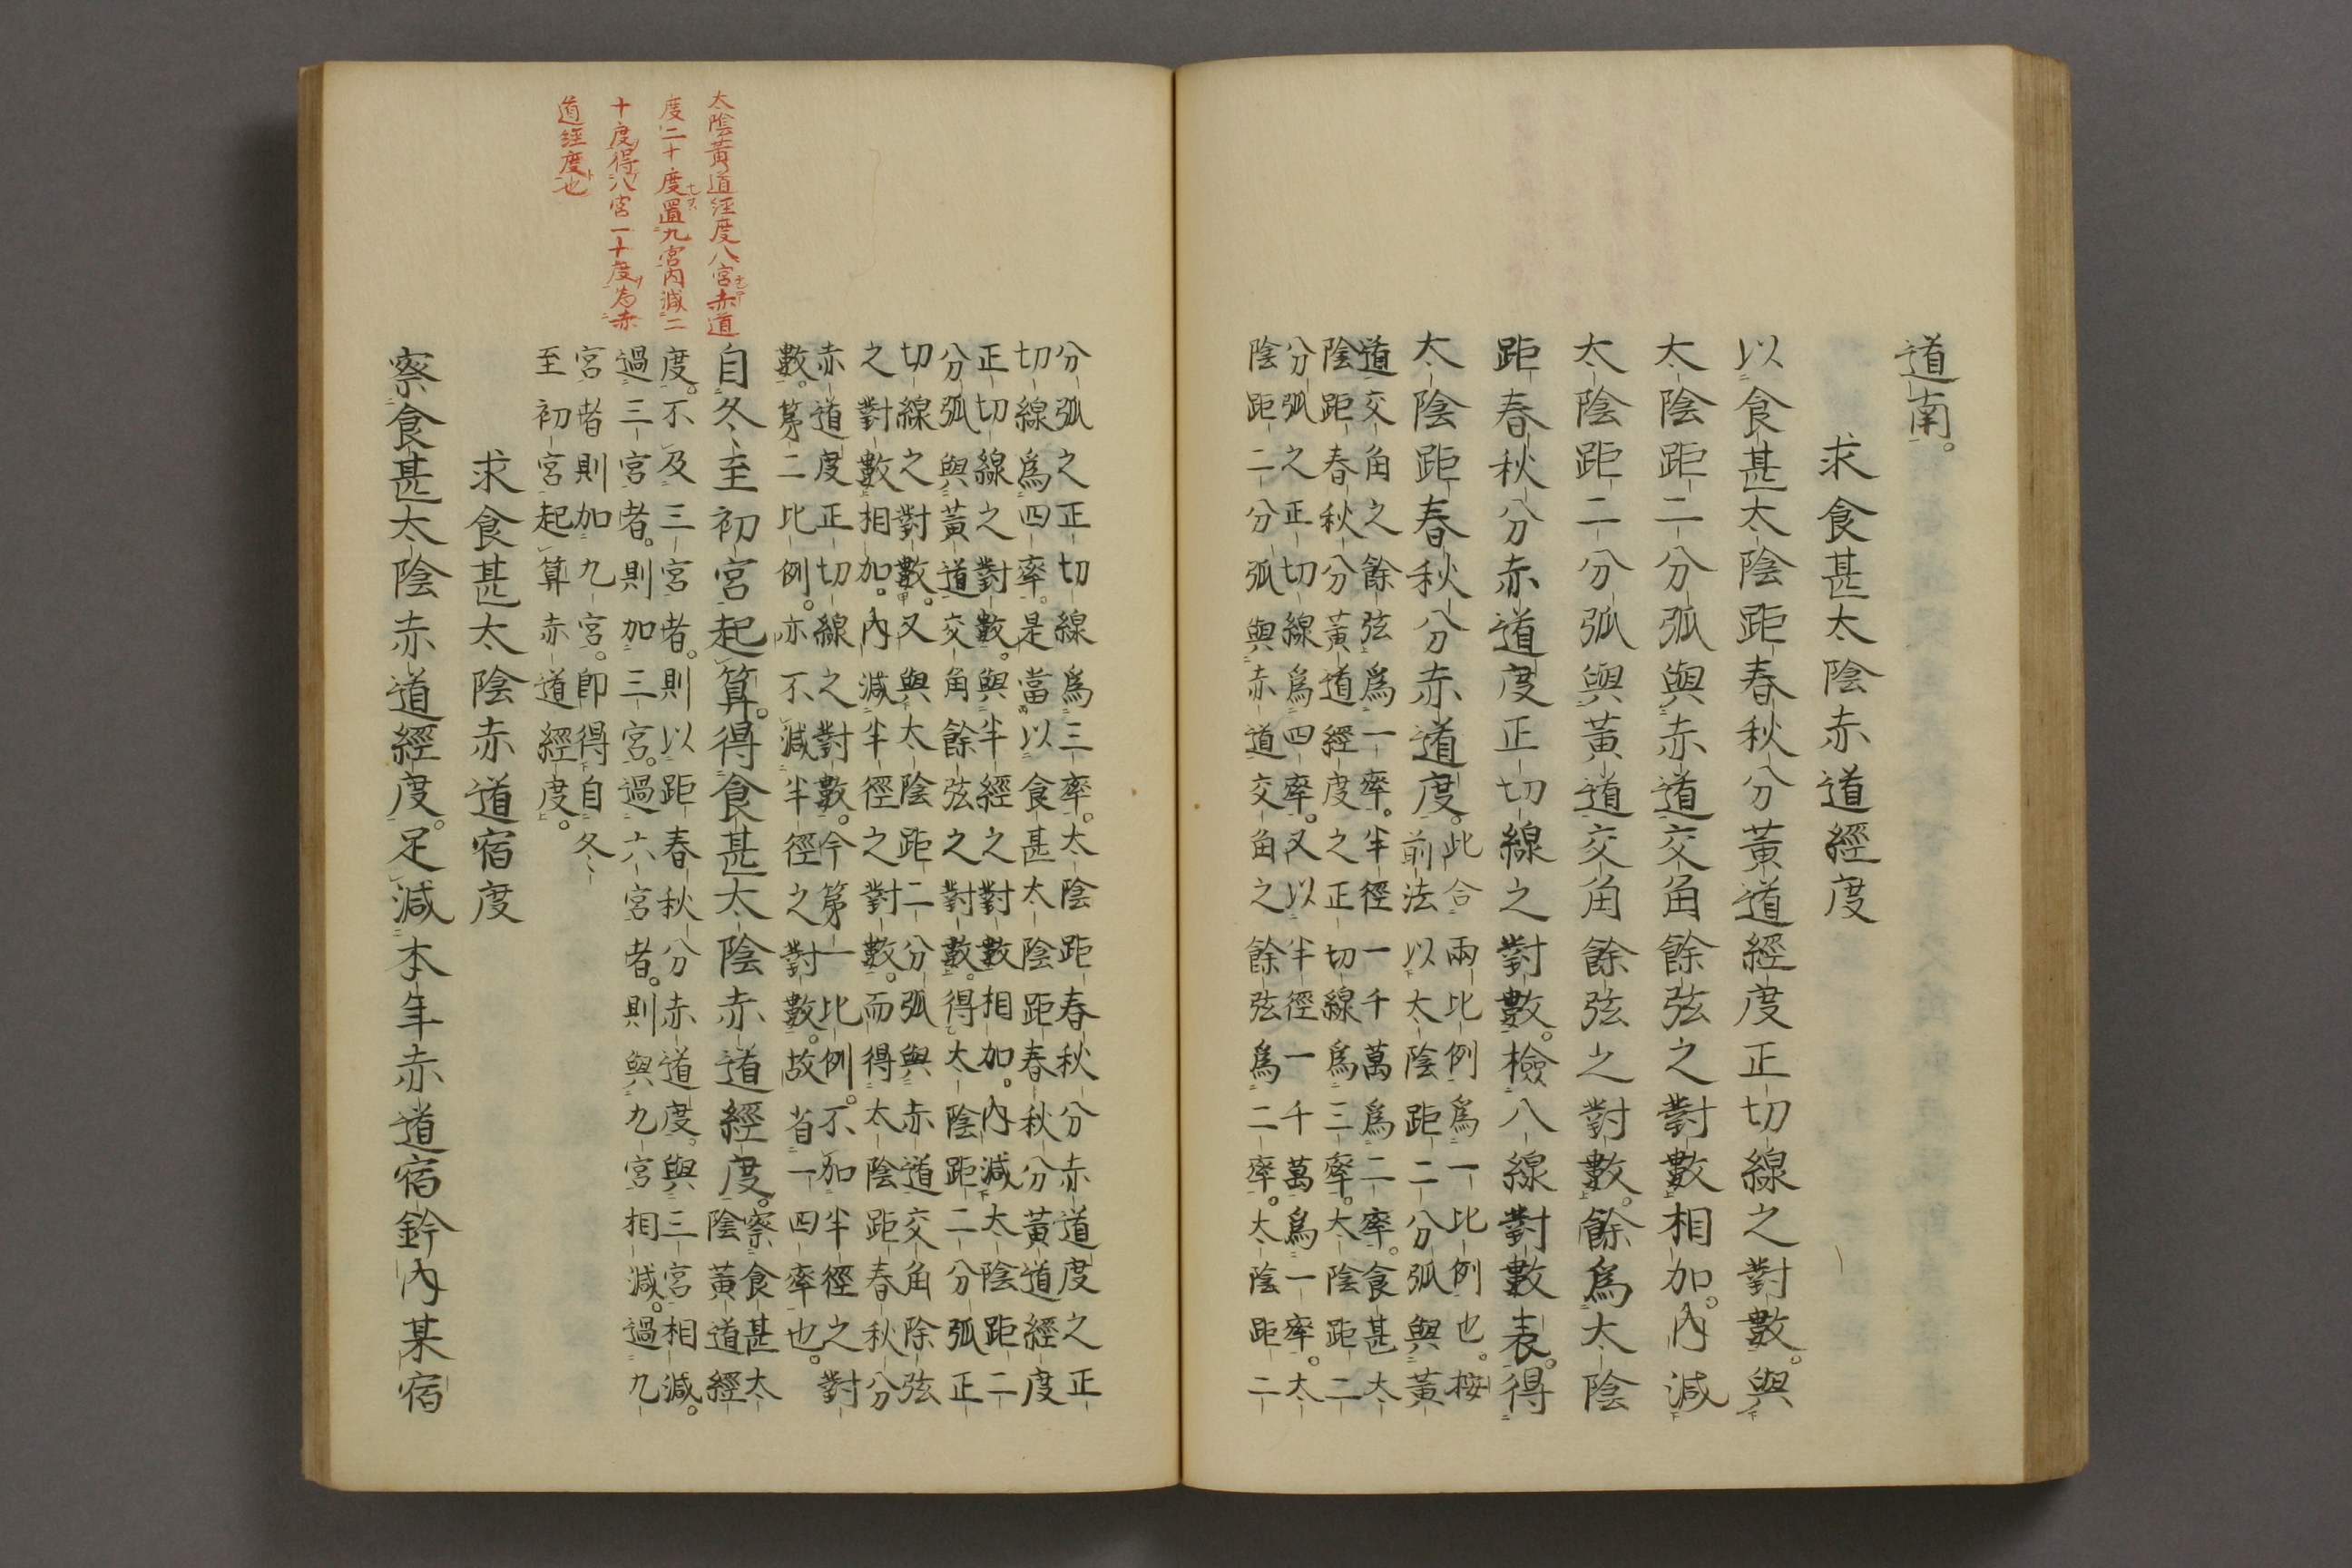 道南。
求食甚太陰赤道經度
以食甚太陰距春秋分黃道經度正切線之對數。與
太陰距二分弧與赤道交角餘弦之對數相加。內減
太陰距二分弧與黃道交角餘弦之對數。餘爲太陰
距春秋分赤道度正切線之對數。檢八線對數表。得
太陰距春秋分赤道度。
此合兩比例爲一比例也。按
前法以太陰距二分弧與黃
道交角之餘弦爲一率。半徑一千萬爲二率。食甚太
陰距春秋分黃道經度之正切線爲三率。太陰距二
分弧之正切線爲四率。又以半徑一千萬爲一率。太
陰距二分弧與赤道交角之餘弦爲二率。太陰距二
分弧之正切線爲三率。太陰距春秋分赤道度之正
切線爲四率。是當以食甚太陰距春秋分黃道經度
正切線之對數。與半經之對數相加。內減太陰距二
分弧與黃道交角餘弦之對數。得太陰距二分弧正
切線之對數。又與太陰距二分弧與赤道交角除弦
之對數相加。內減半徑之對數。而得太陰距春秋分
赤道度正切線之對數。今第一比例。不加半徑之對
數。第二比例。亦不減半徑之對數。故省一四率也。
太陰黃道經度八宮赤道
度二十度置九宮內減二
十度得八宮一十度為赤
道經度也
自冬至初宮起算。得食甚太陰赤道經度。
察食甚太
陰黃道經
度。不及三宮者。則以距春秋分赤道度。與三宮相減。
過三宮者。則加三宮。過六宮者。則與九宮相減。過九
宮者則加九宮。即得自冬
至初宮起算赤道經度。
求食甚太陰赤道宿度
察食甚太陰赤道經度。足減本年赤道宿鈐內某宿